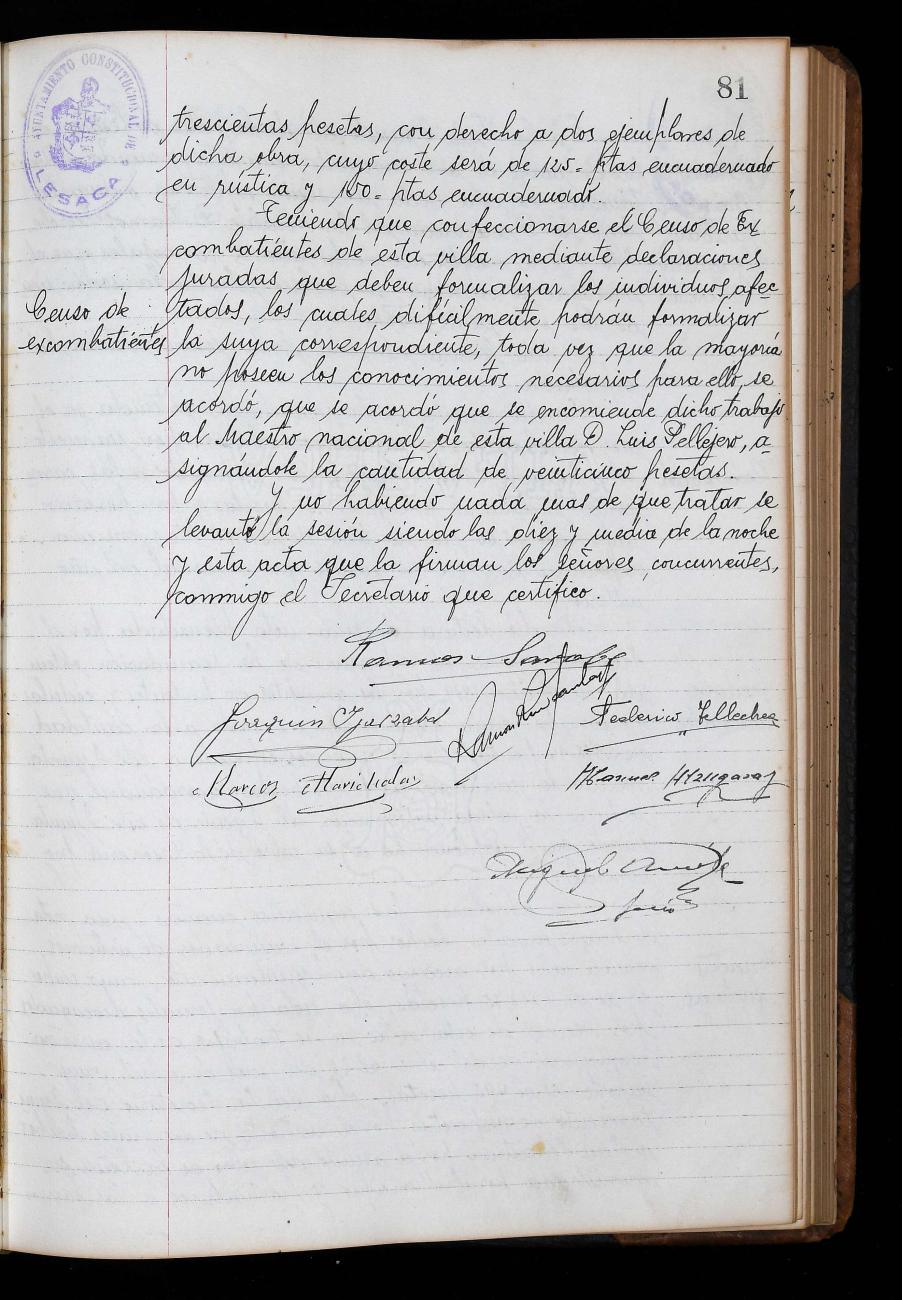 81
AYUNTAMIENTO CONSTITUCIONAL DE
LESACA
trescientas pesetas, con derecho a dos ejemplares de
dicha obra, cuyo coste será de 125= ptas encuadernado
en rústica y 150= ptas encuadernado.
Teniendo que confeccionarse el Censo de Ex
combatientes de esta villa mediante declaraciones
juradas que deben formalizar los individuos afec-
Censo de
excombatientes
tados, los cuales difícilmente podrán formalizar
la suya correspondiente, toda vez que la mayoría
no poseen los conocimientos necesarios para ello, se
acordó, que se acordó que se encomiende dicho trabajo
al Maestro nacional de esta villa D. Luis Pellejero, a-
signándole la cantidad de veinticinco pesetas.
Y no habiendo nada mas de que tratar se
levantó la sesión siendo las diez y media de la noche
y esta acta que la firman los señores concurrentes,
conmigo el Secretario que certifico.
Ramon
Joaquin Ramon Federico Tellechea
Marcos Marichalar Manuel
Miguel